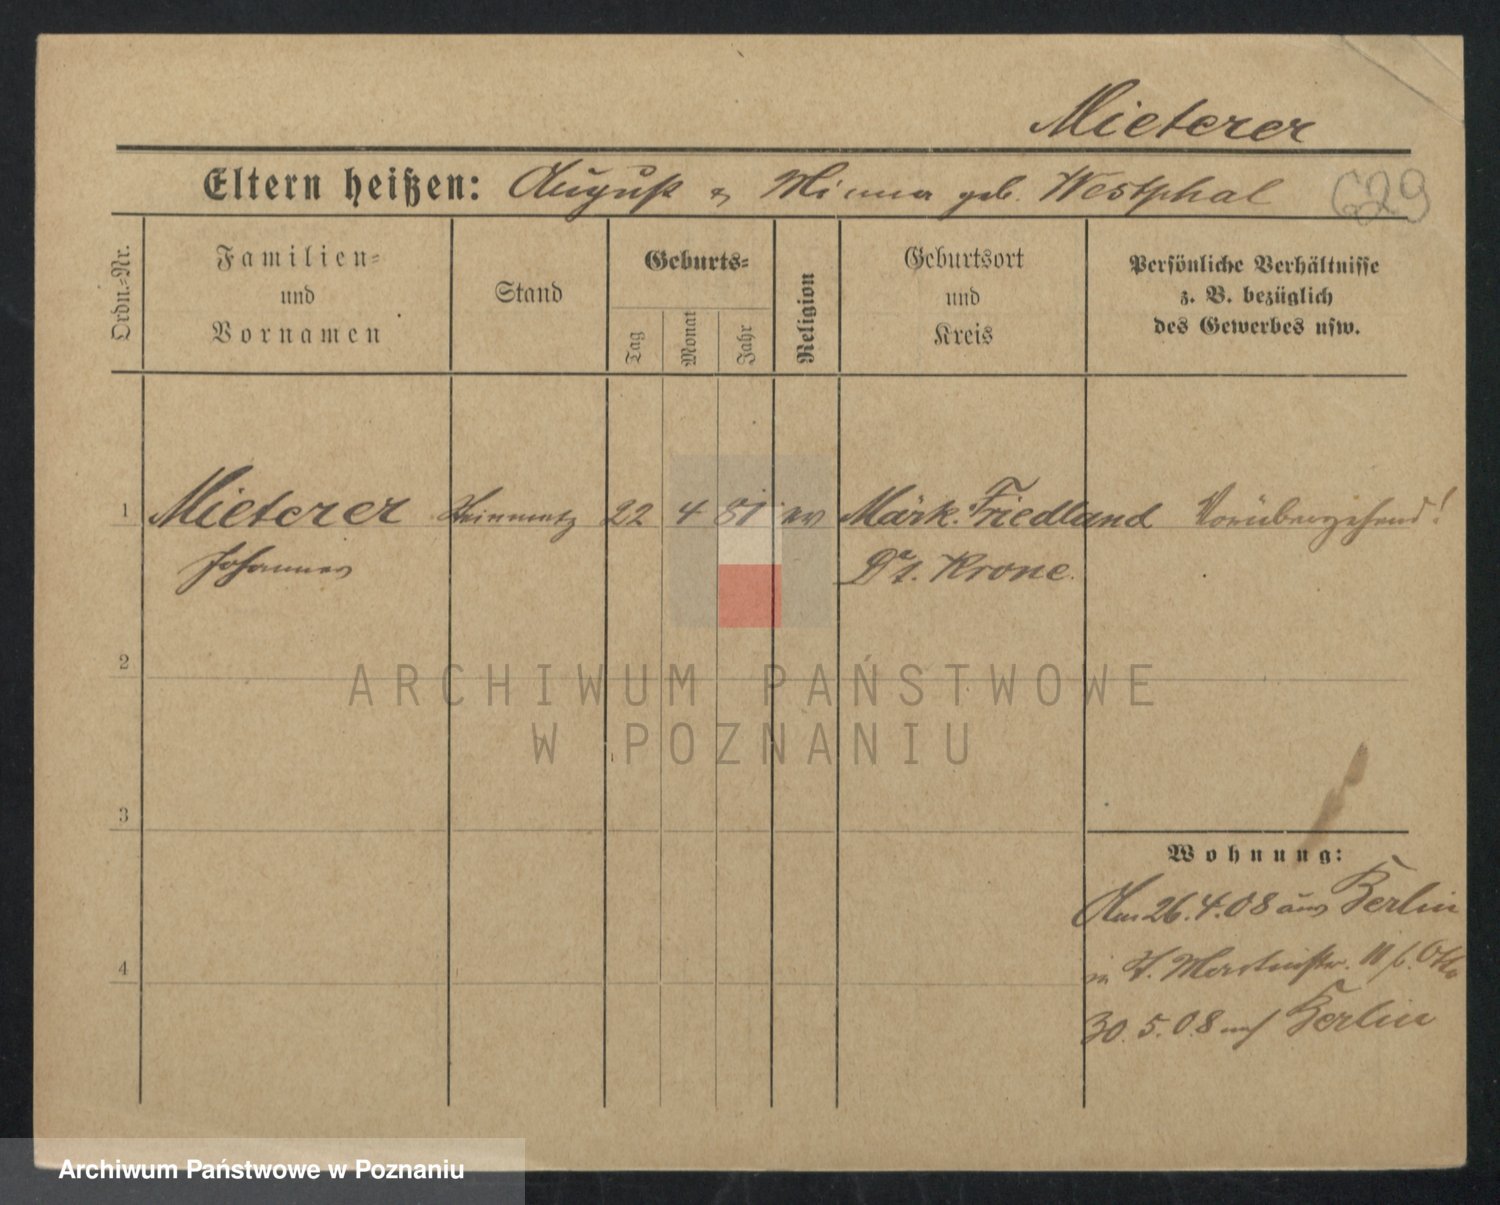 Mieterer
Eltern heißen: August & Minna geb. Westphal 629
Ordn.-Nr.
Familien-
und
Vornamen
Stand
Geburts-
Tag
Monat
Jahr
Religion
Geburtsort
und
Kreis
Persönliche Verhältnisse
z. B. bezüglich
des Gewerbes usw.
1 Mieterer Steinmetz 22 4 81 ev Märk. Friedland Vorübergehend!
Johannes Dt. Krone.
2
ARCHIWUM PAŃSTWOWE
W POZNANIU
3
Wohnung:
Am 26.4.08 aus Berlin
4
in 11 b. Otto
30.5.08 nach Berlin
Archiwum Państwowe w Poznaniu